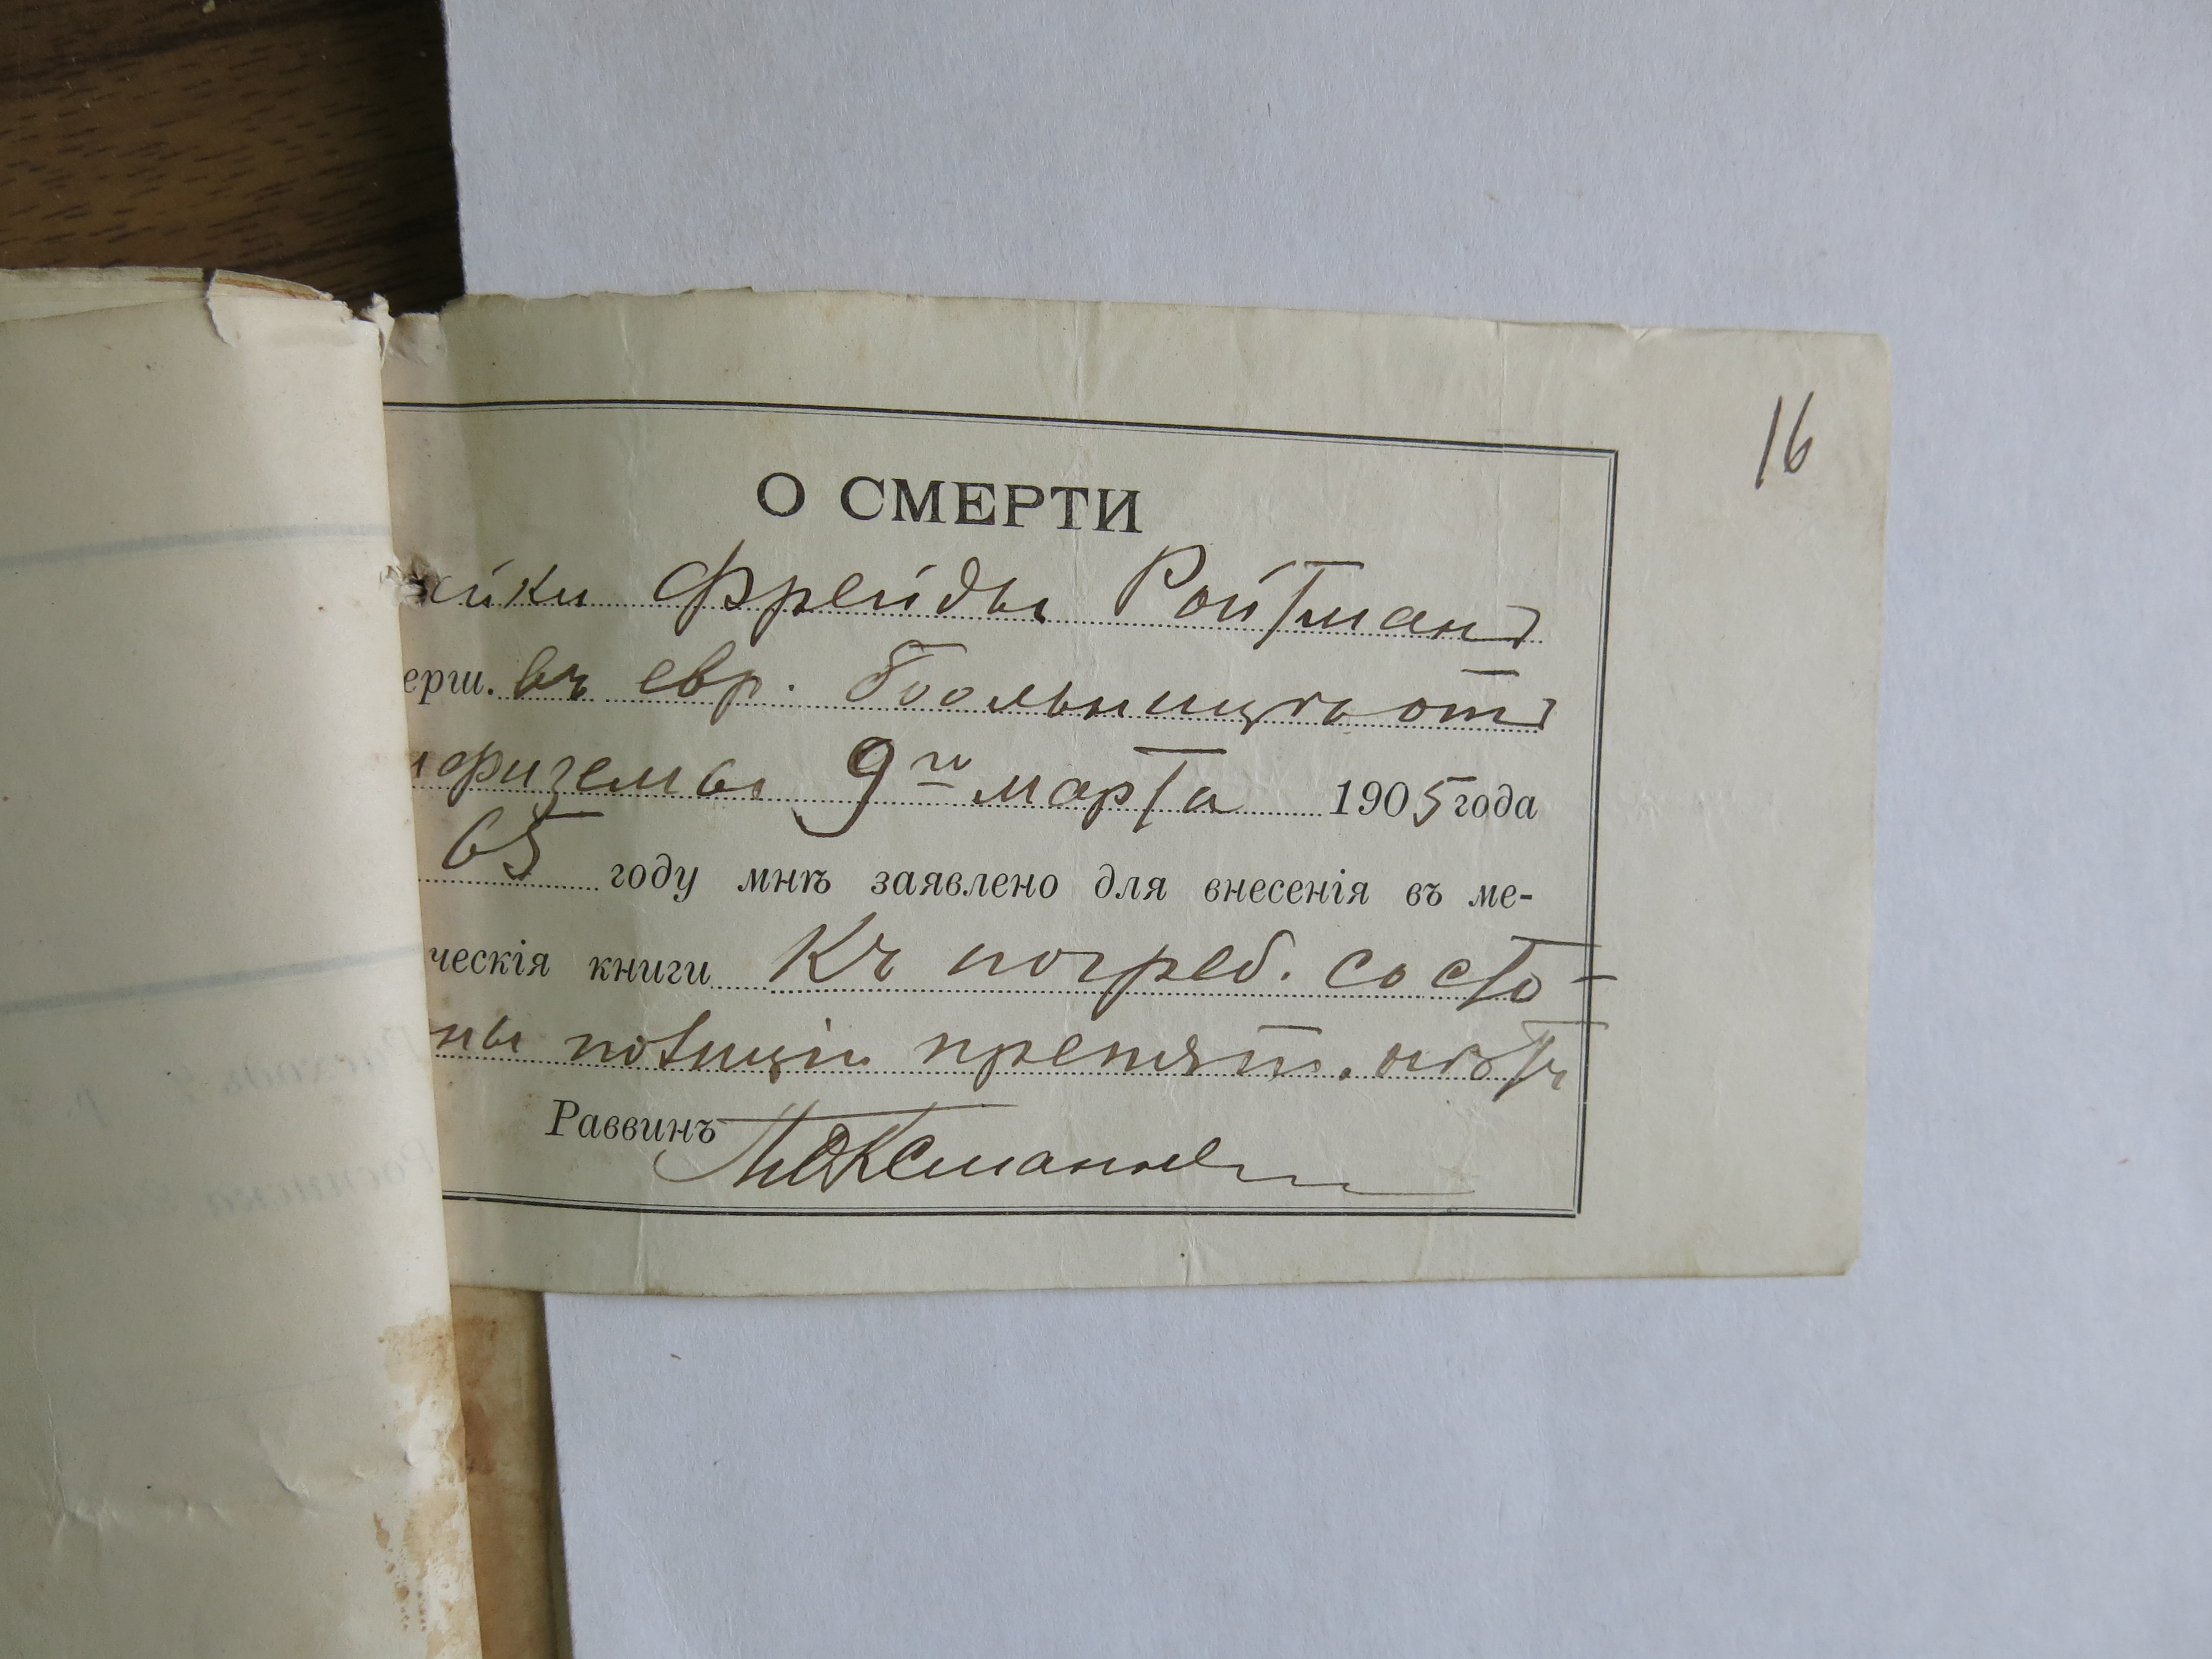 16
О СМЕРТИ
йки Фрейды Ройтманъ
ерш. въ евр. больницѣ отъ
физемы 9го марта 1905 года
65 году мнѣ заявлено для внесенія въ ме-
ческія книги Къ погреб. со сто-
ны полиціи препятст. нѣтъ
Раввинъ